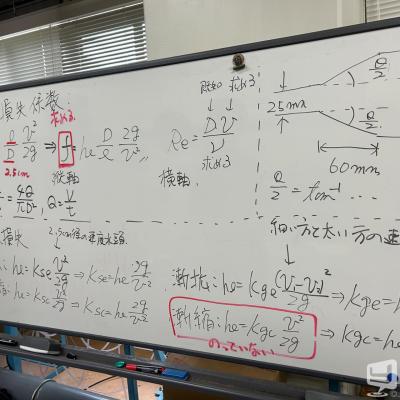 損失係数:
求める
l/D v²/2g ⇒ f = he D/l 2g/v²
2.5cm
縦軸
= 4Q/πD², Q = V/t
既知 求める
Re = Dv/ν
求める
横軸
25mm
θ/2
θ/2
60mm
θ/2 = tan⁻¹ ...
損失
2.5cm径の速度水頭
細い方と太い方の速
: he = kse v²/2g ⇒ kse = he 2g/v²
: he = ksc v²/2g ⇒ ksc = he 2g/v²
漸拡: he = kge (v₁-v₂)²/2g ⇒ kge = h
漸縮: he = kgc v²/2g ⇒ kgc = he
のっていない